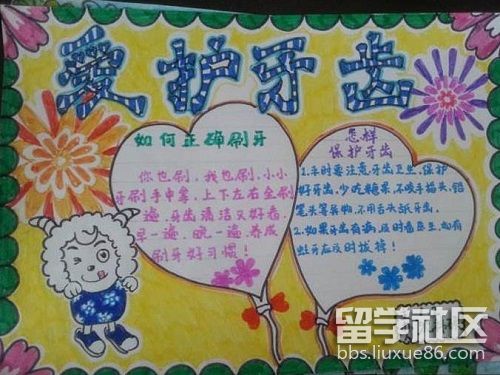 爱护牙齿
如何正确刷牙
你也刷,我也刷,小小
牙刷手中拿,上下左右全刷
遍,牙齿清洁又好看,
早一遍,晚一遍,养成
刷牙好习惯!
怎样
保护牙齿
1.平时要注意牙齿卫生,保护
好牙齿,少吃糖果,不咬手指头,铅
笔头等异物,不用舌头舐牙齿.
2.如果牙齿有病,及时看医生,如有
蛀牙应及时拔掉!
留学社区
bbs.liuxue86.com